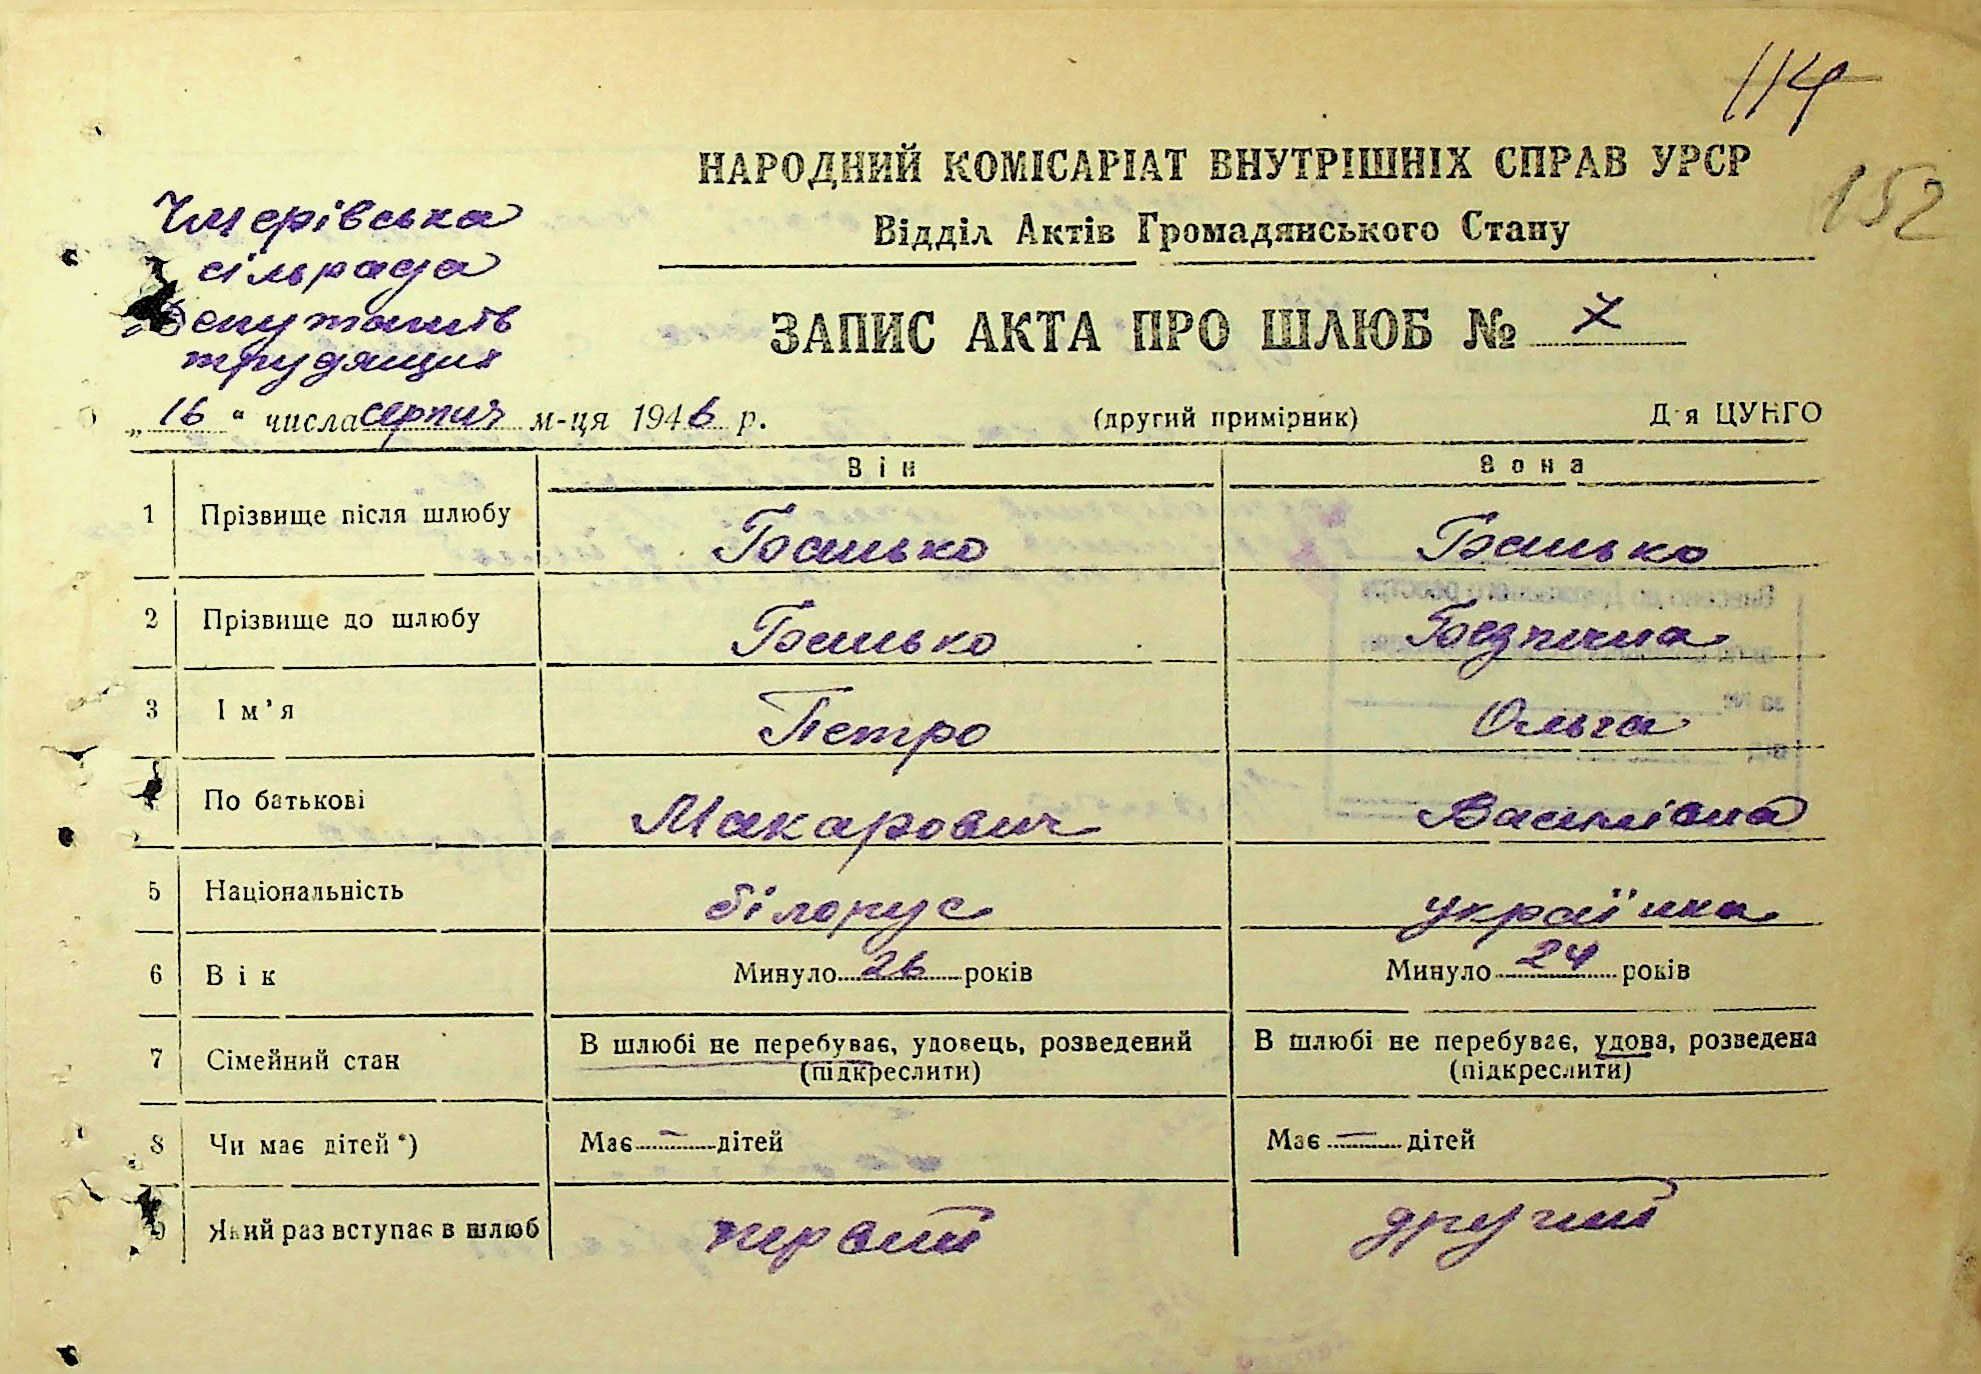 114
152
НАРОДНИЙ КОМІСАРІАТ ВНУТРІШНІХ СПРАВ УРСР
Відділ Актів Громадянського Стану
Чмерівська
сільрада
депутатів
трудящих
ЗАПИС АКТА ПРО ШЛЮБ № 7
„16“ числа серпня м-ця 1946 р. (другий примірник) Для ЦУНГО
Він Вона
1 Прізвище після шлюбу Банько Банько
2 Прізвище до шлюбу Банько Безпечна
3 Ім'я Петро Ольга
4 По батькові Макарович Василівна
5 Національність білорус українка
6 Вік Минуло 26 років Минуло 24 років
7 Сімейний стан В шлюбі не перебуває, удовець, розведений В шлюбі не перебуває, удова, розведена
(підкреслити) (підкреслити)
8 Чи має дітей *) Має — дітей Має — дітей
9 Який раз вступає в шлюб первий другий